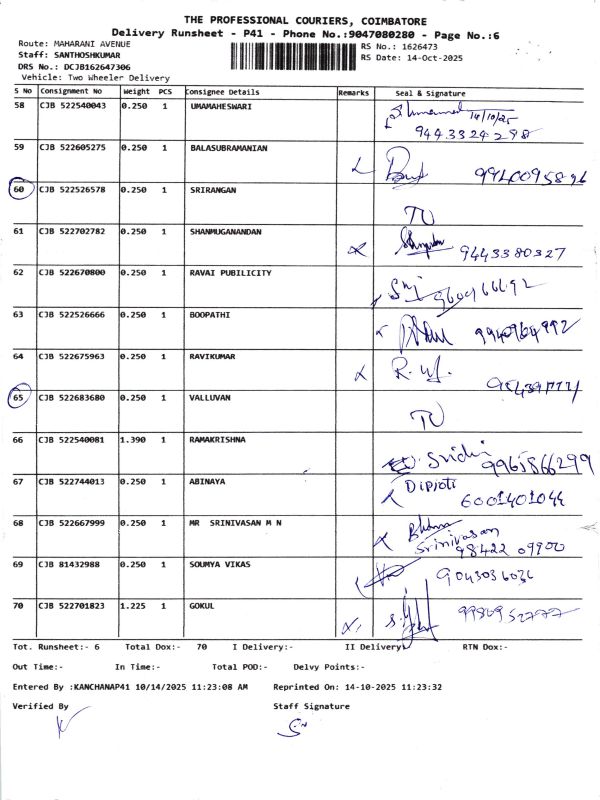 THE PROFESSIONAL COURIERS, COIMBATORE
Delivery Runsheet - P41 - Phone No.:9047080280 - Page No.:6
Route: MAHARANI AVENUE RS No.: 1626473
Staff: SANTHOSHKUMAR RS Date: 14-Oct-2025
DRS No.: DCJB162647306
Vehicle: Two Wheeler Delivery
S No Consignment No Weight PCS Consignee Details Remarks Seal & Signature
58 CJB 522540043 0.250 1 UMAMAHESWARI 14/10/25
9443324298
59 CJB 522605275 0.250 1 BALASUBRAMANIAN
60 CJB 522526578 0.250 1 SRIRANGAN
TU
61 CJB 522702782 0.250 1 SHANMUGANANDAN
9443380327
62 CJB 522670800 0.250 1 RAVAI PUBILICITY
63 CJB 522526666 0.250 1 BOOPATHI
9940964992
64 CJB 522675963 0.250 1 RAVIKUMAR
65 CJB 522683680 0.250 1 VALLUVAN
TU
66 CJB 522540081 1.390 1 RAMAKRISHNA
Sridhi 9965866299
67 CJB 522744013 0.250 1 ABINAYA Dipjoti
6001401044
68 CJB 522667999 0.250 1 MR SRINIVASAN M N
Srinivasan
98422 09900
69 CJB 81432988 0.250 1 SOUMYA VIKAS 9043036036
70 CJB 522701823 1.225 1 GOKUL
Tot. Runsheet:- 6 Total Dox:- 70 I Delivery:- II Delivery:- RTN Dox:-
Out Time:- In Time:- Total POD:- Delvy Points:-
Entered By :KANCHANAP41 10/14/2025 11:23:08 AM Reprinted On: 14-10-2025 11:23:32
Verified By Staff Signature